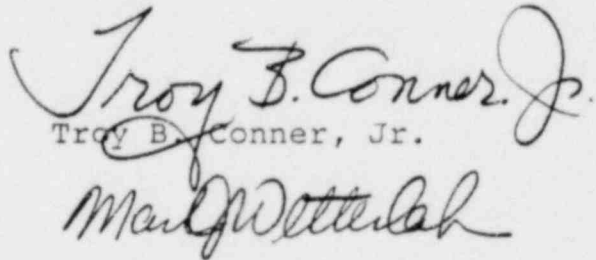 Troy B. Conner. Jr.
Troy B. Conner, Jr.
Mark J Wetterhahn